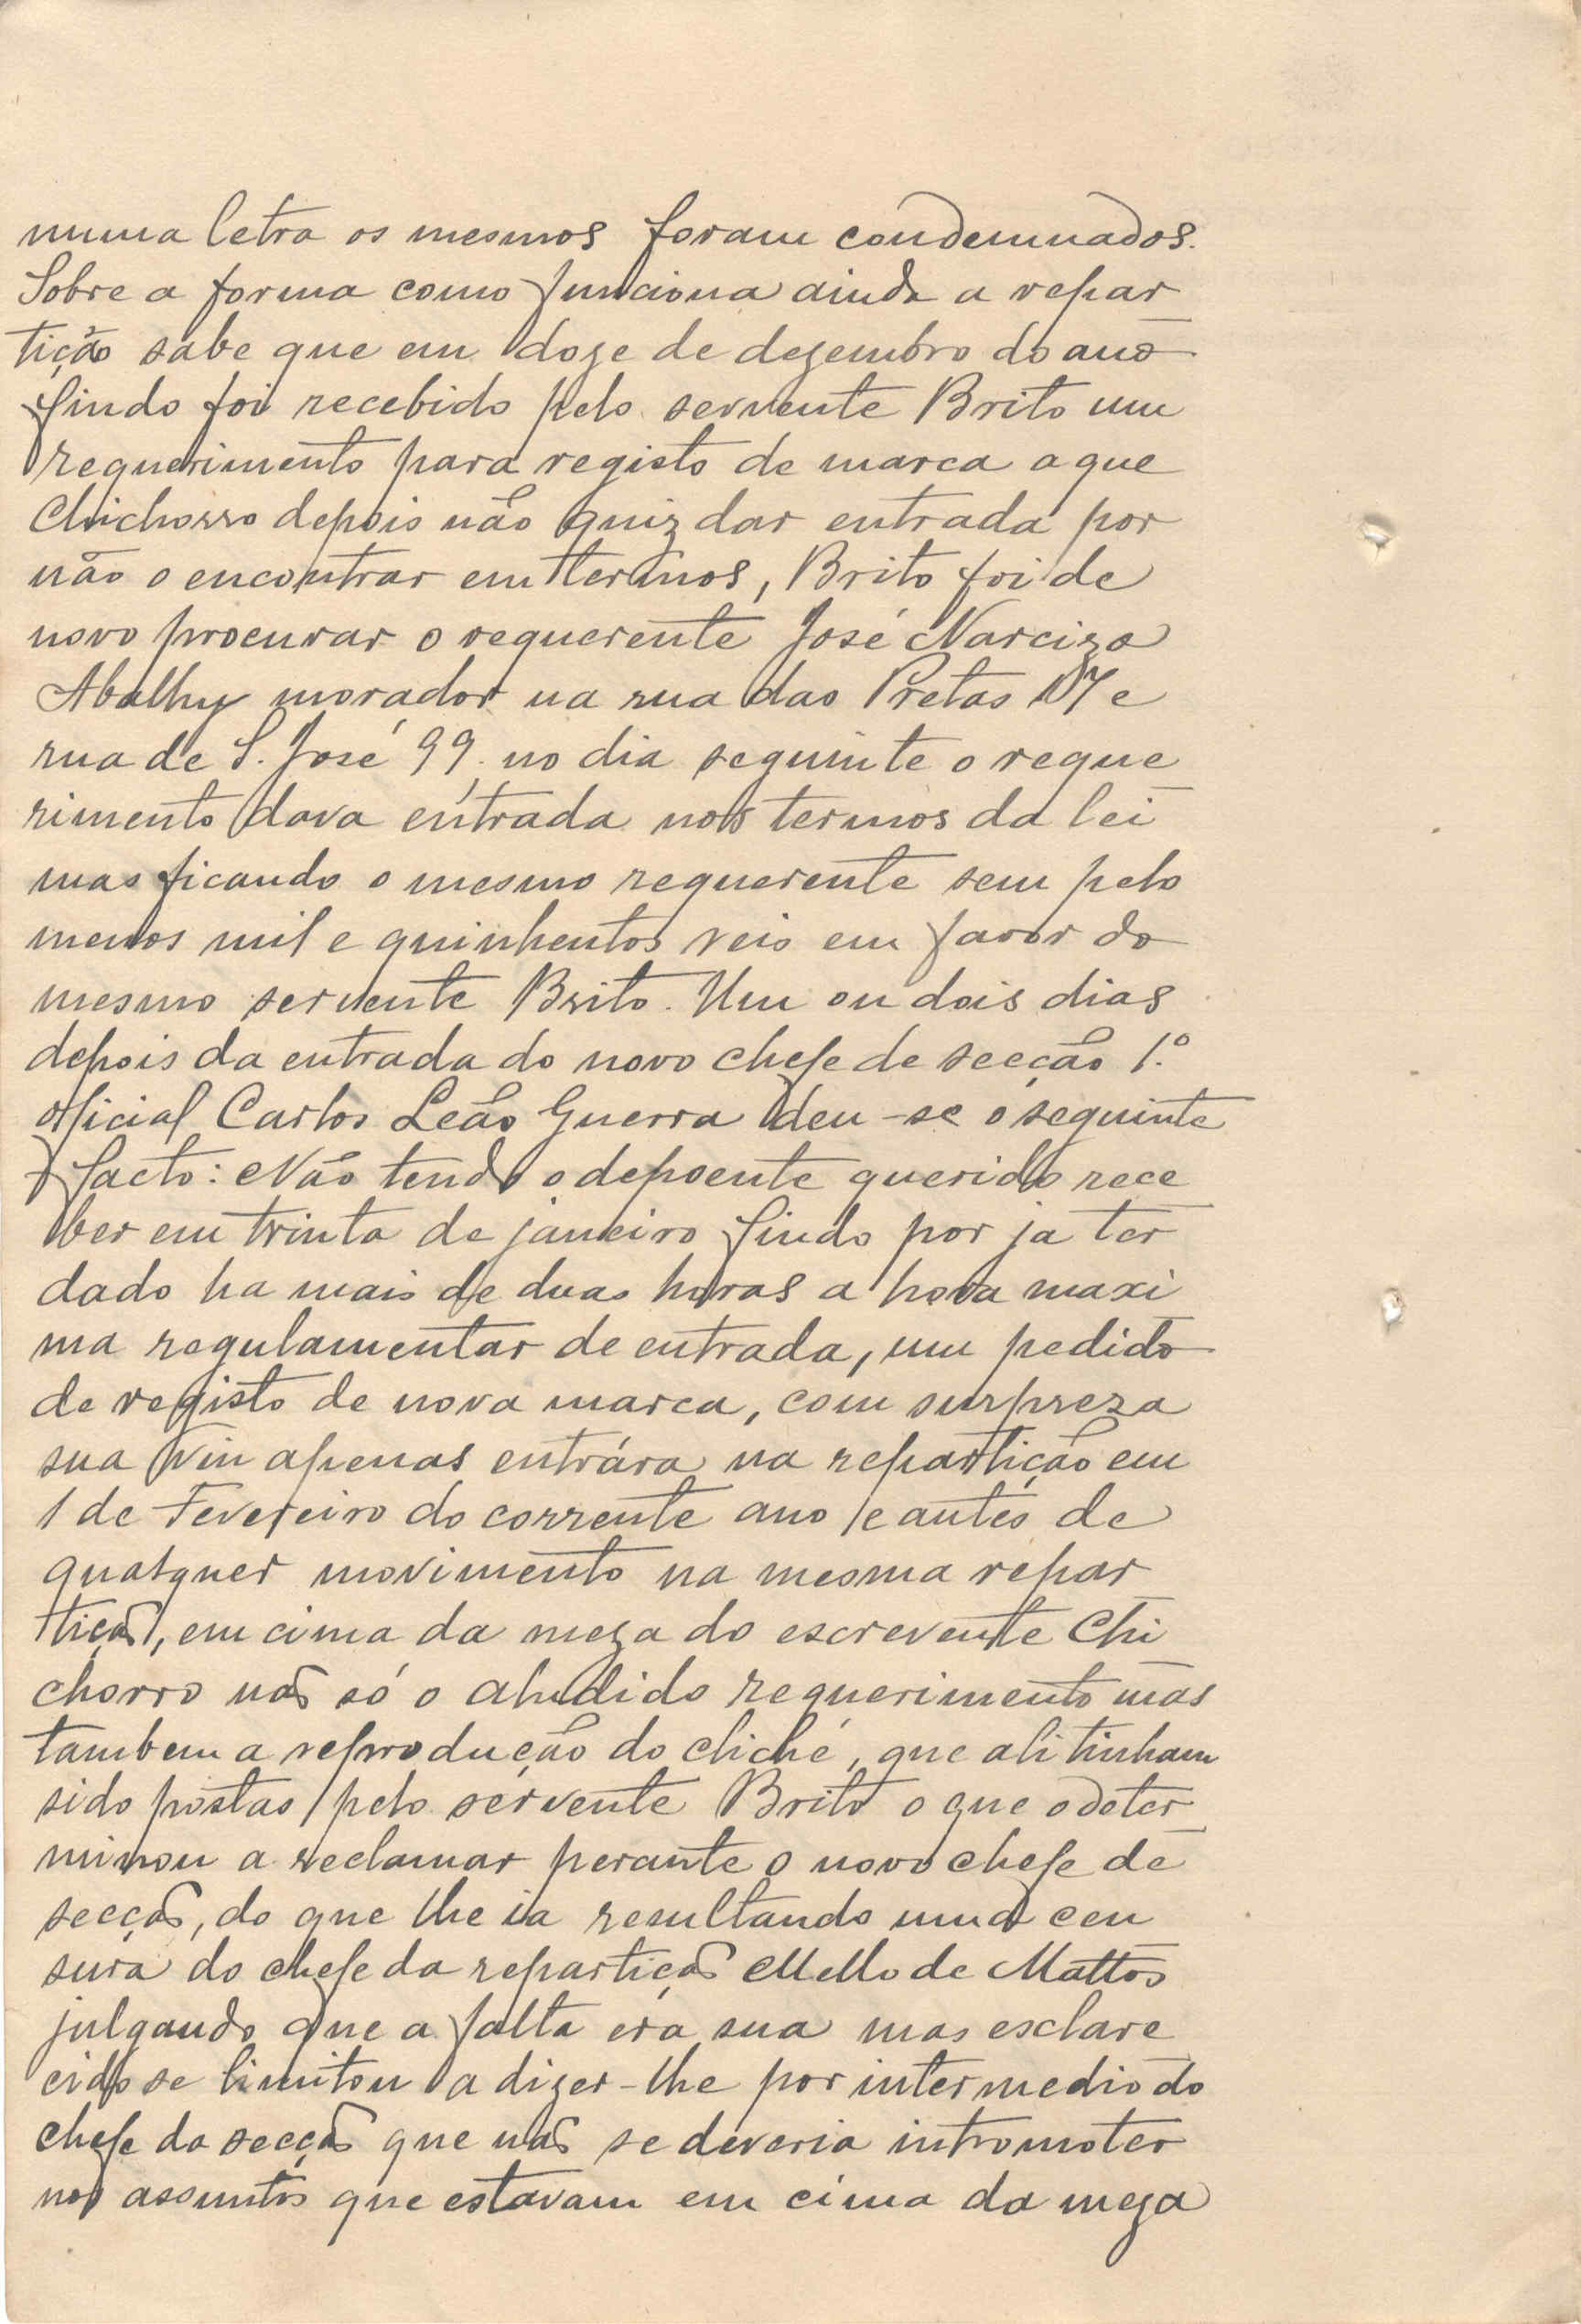 numa letra os mesmos foram condemnados.
Sobre a forma como funciona ainda a repar
tição sabe que em doze de dezembro do ano
findo foi recebido pelo servente Brito um
requerimento para registo de marca a que
Chichorro depois não quiz dar entrada por
não o encontrar em termos, Brito foi de
novo procurar o requerente José Narcizo
Abalhy morador na rua das Pretas 17 e
rua de S. José 99. no dia seguinte o reque
rimento dava entrada nos termos da lei
mas ficando o mesmo requerente sem pelo
menos mil e quinhentos reis em favor do
mesmo servente Brito. Um ou dois dias
depois da entrada do novo chefe de secção 1.º
oficial Carlos Leão Guerra deu-se o seguinte
facto: Não tendo o depoente querido rece
ber em trinta de janeiro findo por ja ter
dado ha mais de duas horas a hora maxi
ma regulamentar de entrada, um pedido
de registo de nova marca, com surpreza
sua viu apenas entrára na repartição em
1 de Fevereiro do corrente ano e antes de
qualquer movimento na mesma repar
tição, em cima da meza do escrevente Chi
chorro não só o aludido requerimento mas
tambem a reprodução do cliché, que ali tinham
sido postas pelo servente Brito o que o deter
minou a reclamar perante o novo chefe de
secção, do que lhe ia resultando uma cen
sura do chefe da repartição Mello de Mattos
julgando que a falta era sua mas esclare
cido se limitou a dizer-lhe por intermedio do
chefe da secção que não se deveria intrometer
nos assuntos que estavam em cima da meza